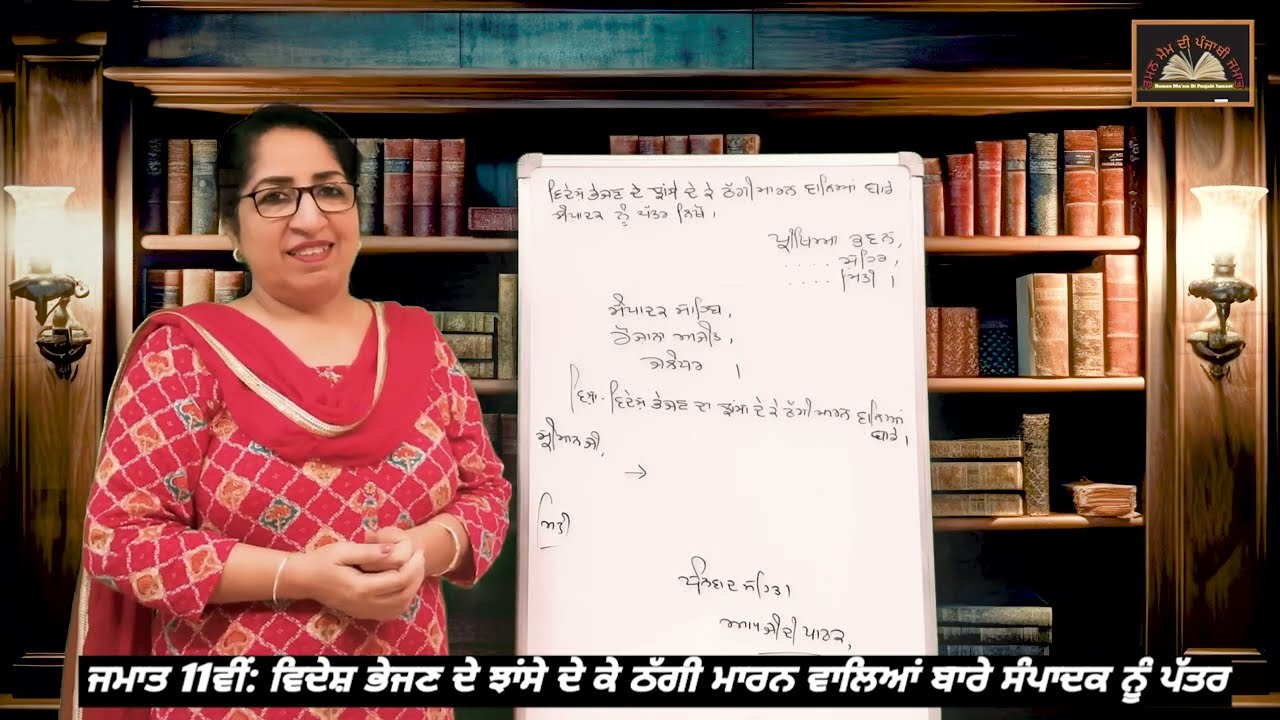 ਰਮਨ ਮੈਮ ਦੀ ਪੰਜਾਬੀ ਜਮਾਤ
Raman Ma'am Di Punjabi Jamaat
ਵਿਦੇਸ਼ ਭੇਜਣ ਦੇ ਝਾਂਸੇ ਦੇ ਕੇ ਠੱਗੀ ਮਾਰਨ ਵਾਲਿਆਂ ਬਾਰੇ
ਸੰਪਾਦਕ ਨੂੰ ਪੱਤਰ ਲਿਖੋ।
ਪ੍ਰੀਖਿਆ ਭਵਨ,
.... ਸ਼ਹਿਰ,
.... ਮਿਤੀ ।
ਸੰਪਾਦਕ ਸਾਹਿਬ,
ਰੋਜ਼ਾਨਾ ਅਜੀਤ,
ਜਲੰਧਰ ।
ਵਿਸ਼ਾ- ਵਿਦੇਸ਼ ਭੇਜਣ ਦਾ ਝਾਂਸਾ ਦੇ ਕੇ ਠੱਗੀ ਮਾਰਨ ਵਾਲਿਆਂ
ਬਾਰੇ।
ਸ਼੍ਰੀਮਾਨ ਜੀ,
→
ਮਿਤੀ
ਧੰਨਵਾਦ ਸਹਿਤ।
ਆਪ ਜੀ ਦੀ ਪਾਠਕ,
ਜਮਾਤ 11ਵੀਂ: ਵਿਦੇਸ਼ ਭੇਜਣ ਦੇ ਝਾਂਸੇ ਦੇ ਕੇ ਠੱਗੀ ਮਾਰਨ ਵਾਲਿਆਂ ਬਾਰੇ ਸੰਪਾਦਕ ਨੂੰ ਪੱਤਰ